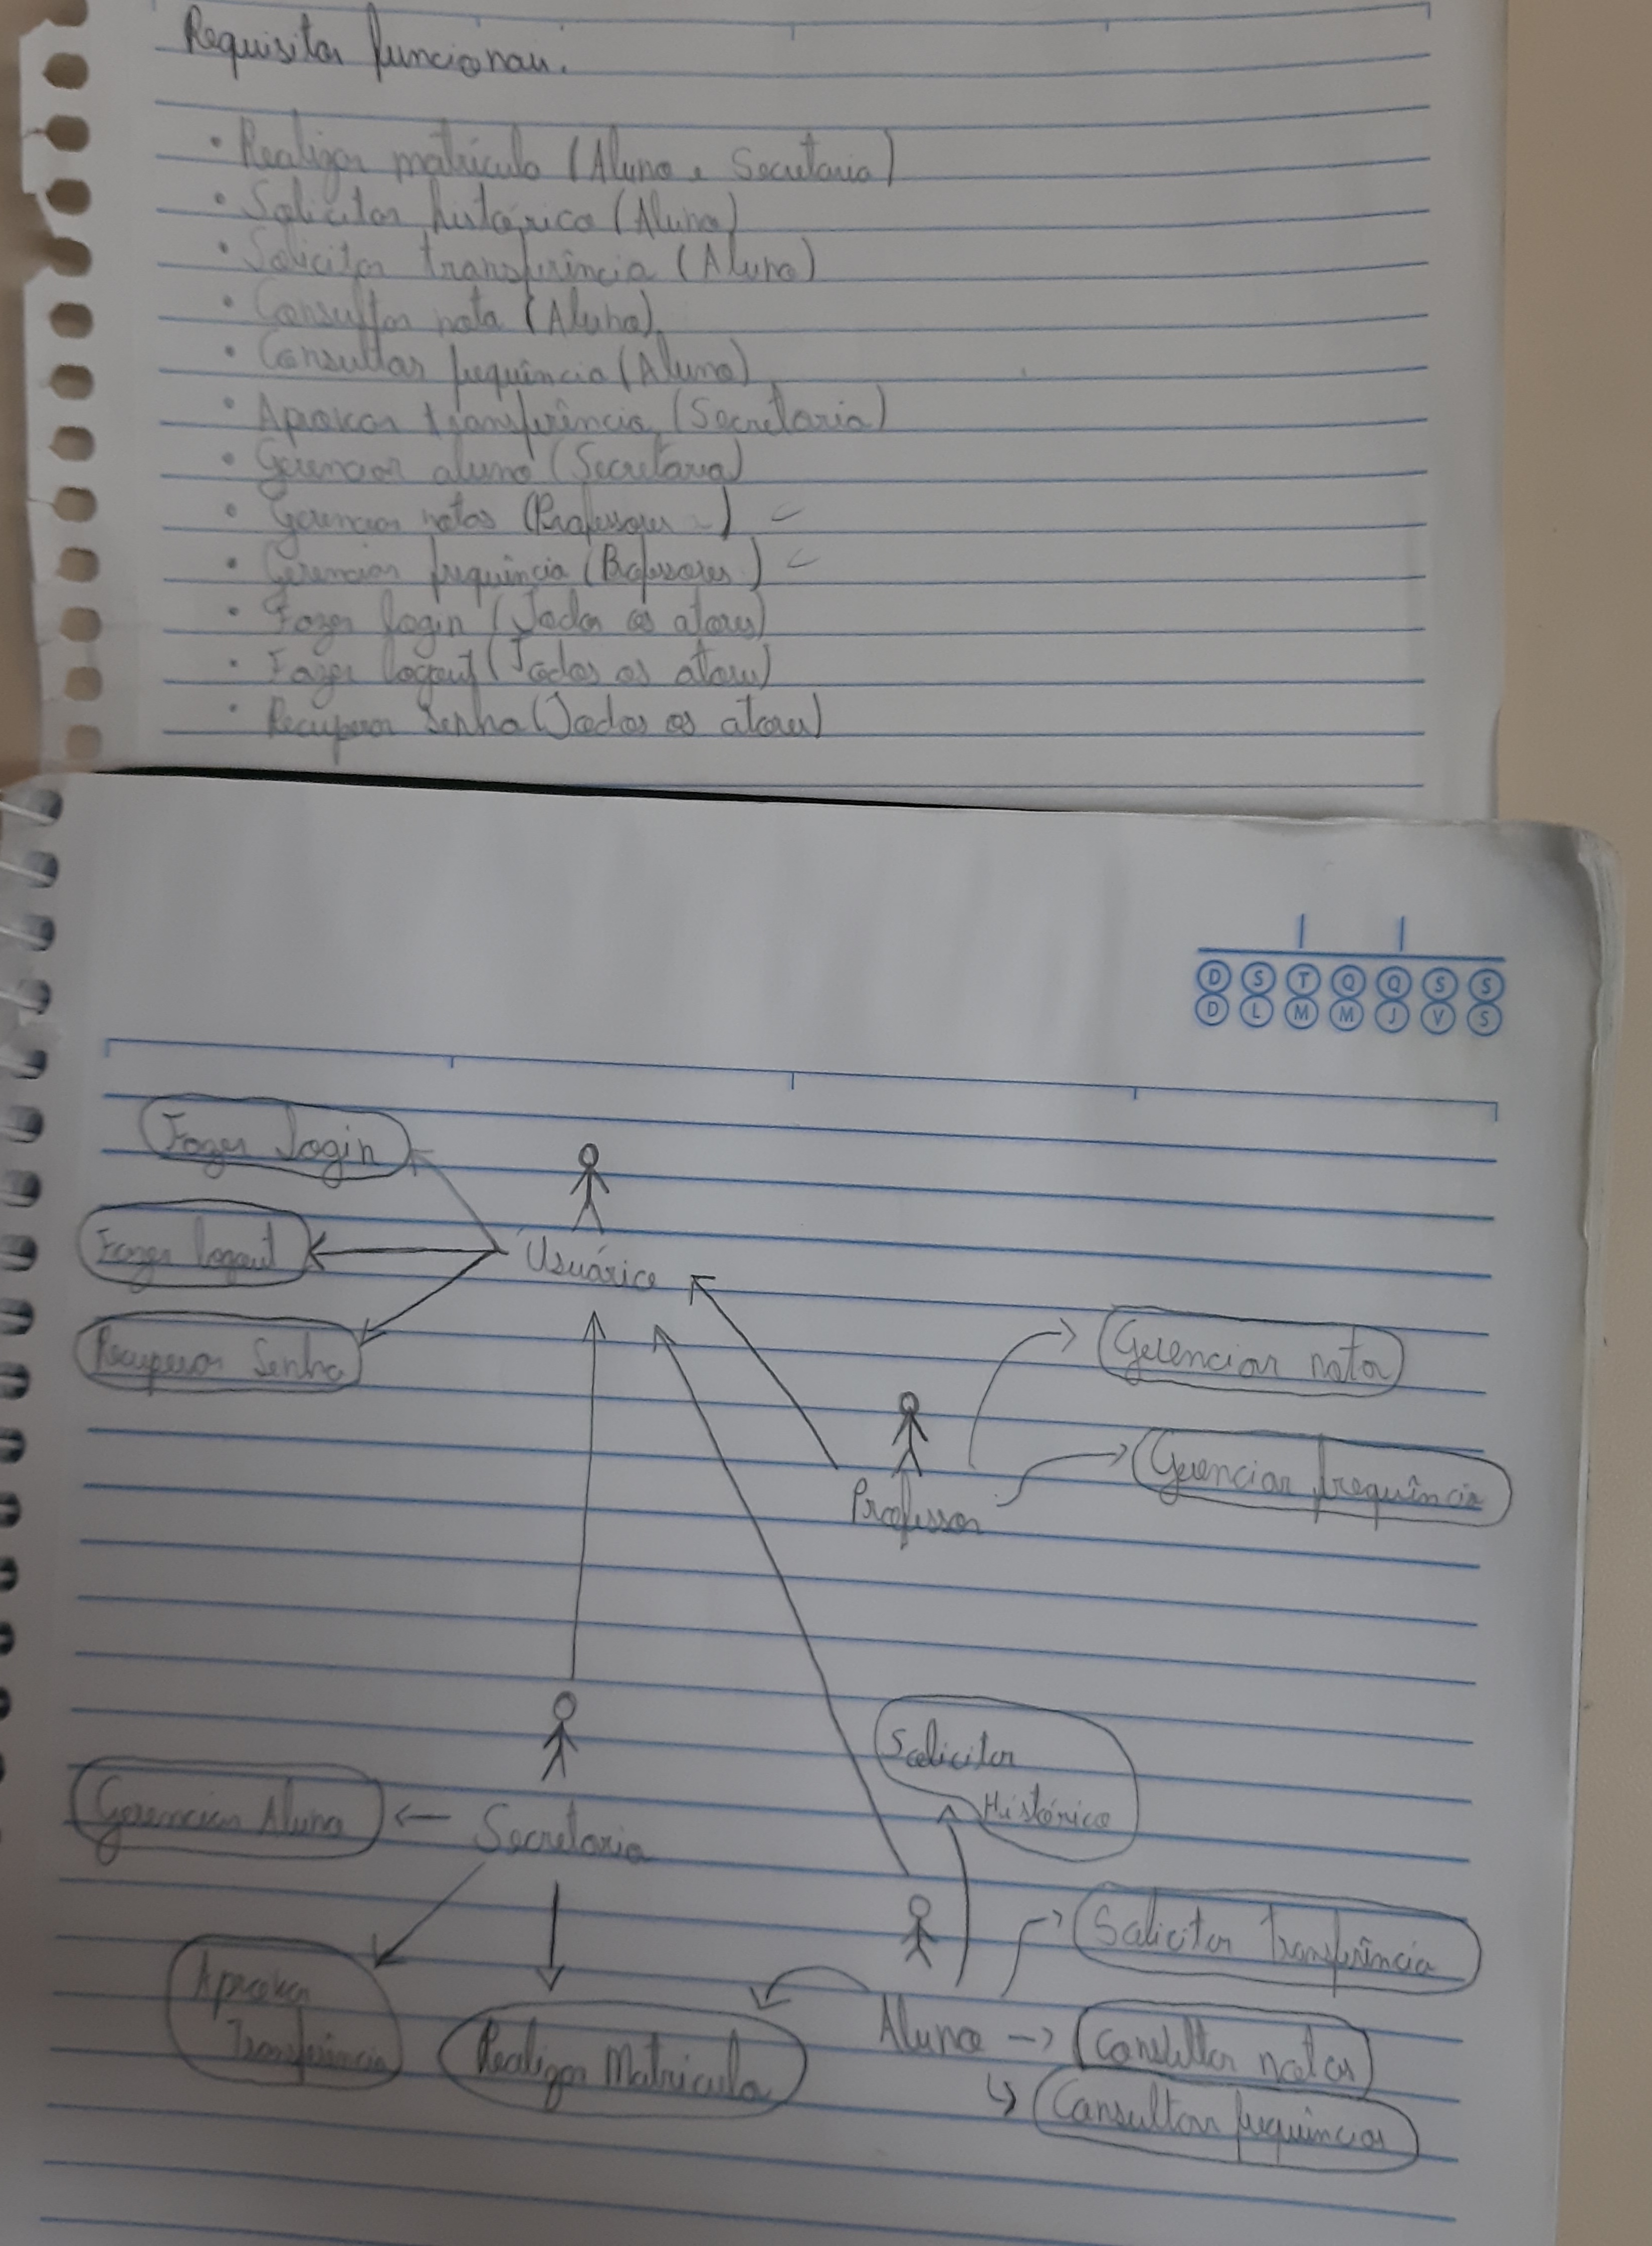 Requisitos funcionais.
• Realizar matrícula (Aluno e Secretaria)
• Solicitar histórico (Aluno)
• Solicitar transferência (Aluno)
• Consultar nota (Aluno)
• Consultar frequência (Aluno)
• Aprovar transferência (Secretaria)
• Gerenciar aluno (Secretaria)
• Gerenciar notas (Professores)
• Gerenciar frequência (Professores)
• Fazer login (Todos os atores)
• Fazer logout (Todos os atores)
• Recuperar Senha (Todos os atores)
D S T Q Q S S
D L M M J V S
Fazer login
Fazer logout
Usuário
Recuperar Senha
Gerenciar nota
Gerenciar frequência
Professor
Solicitar
Histórico
Gerenciar Aluno
Secretaria
Solicitar Transferência
Aprovar
Transferência
Realizar Matricula
Aluno
Consultar notas
Consultar frequências